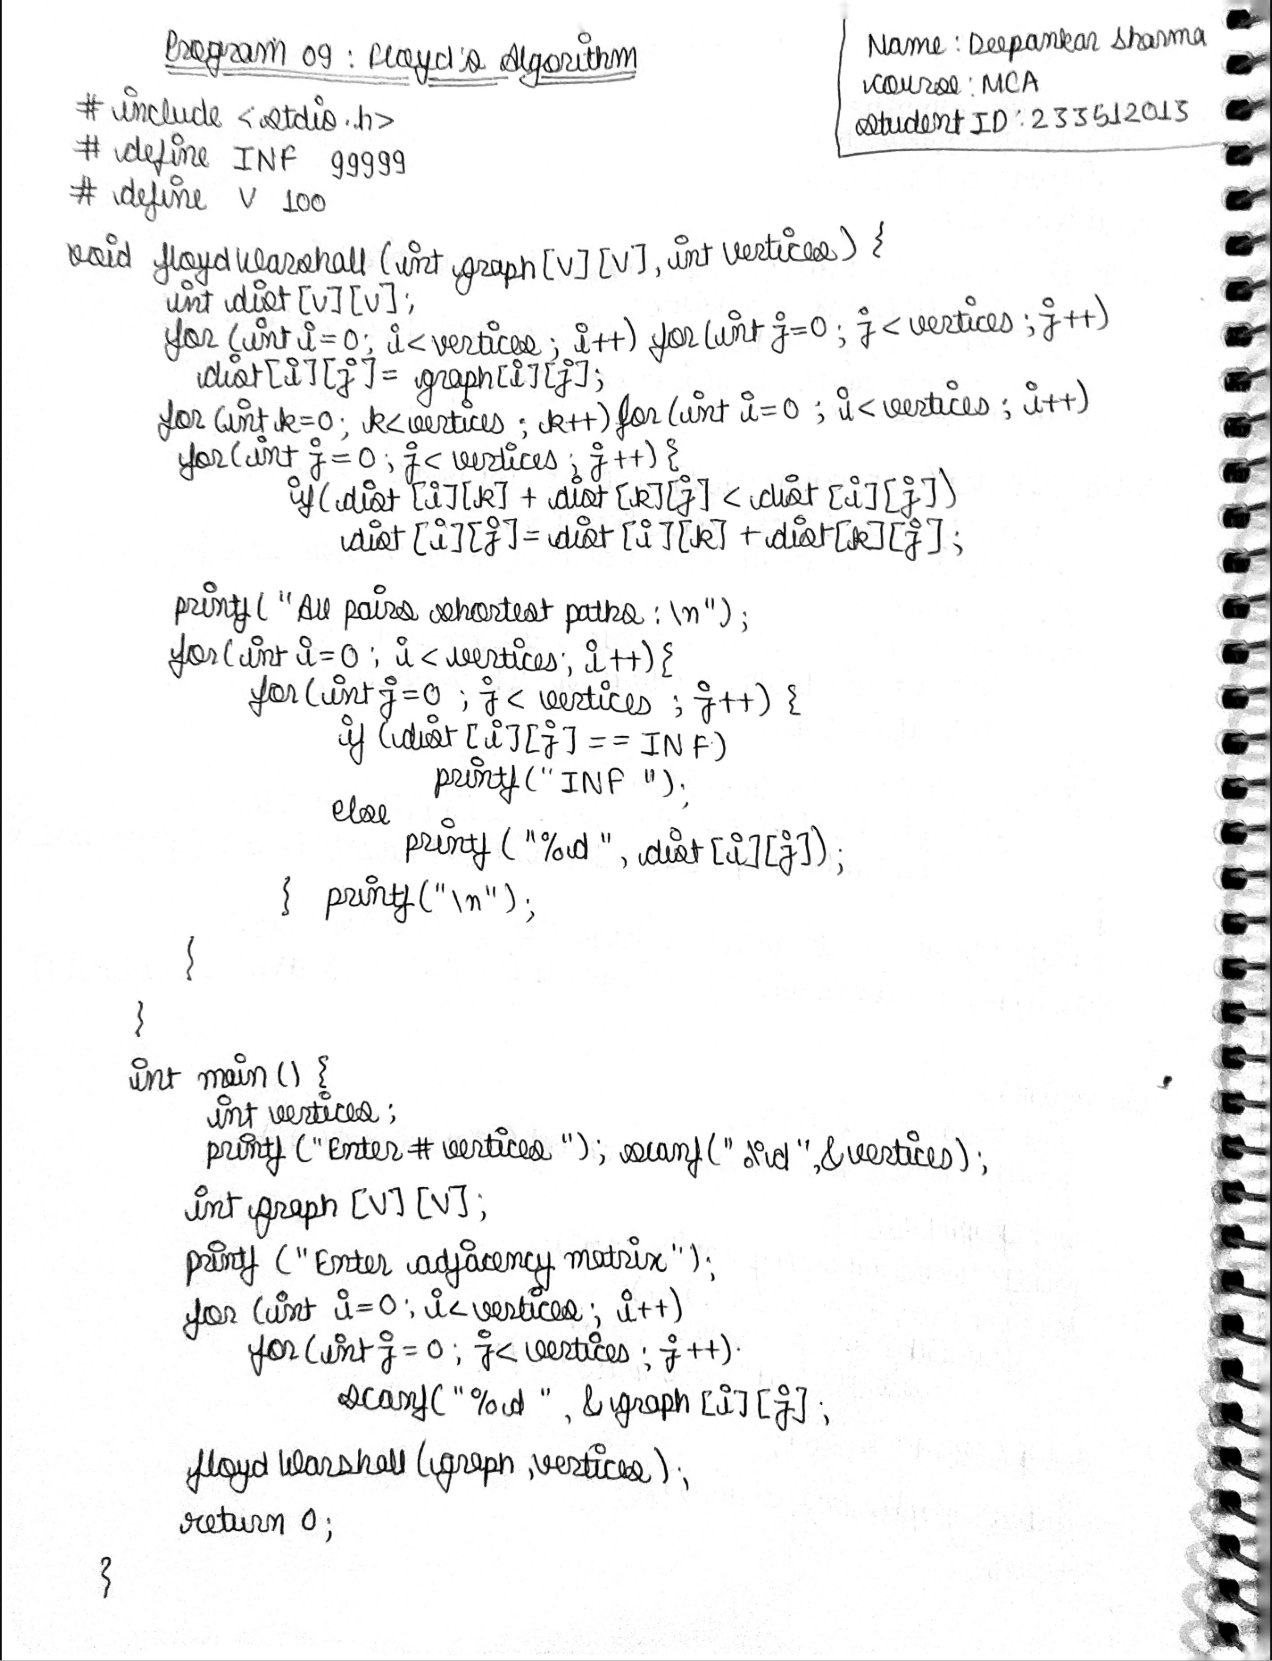 Program 09 : Floyd's Algorithm
Name : Deepankar Sharma
Course : MCA
Student ID : 233512013
# include <stdio.h>
# define INF 99999
# define V 100
void floydWarshall (int graph [V] [V], int vertices) {
int dist [V] [V];
for (int i=0; i<vertices; i++) for (int j=0; j<vertices; j++)
dist [i] [j] = graph[i][j];
for (int k=0; k<vertices; k++) for (int i=0; i<vertices; i++)
for (int j=0; j<vertices; j++) {
if (dist [i][k] + dist [k][j] < dist [i][j])
dist [i][j] = dist [i][k] + dist[k][j];
printf ("All pairs shortest paths : \n");
for (int i=0; i<vertices; i++) {
for (int j=0; j< vertices; j++) {
if (dist [i][j] == INF)
printf ("INF ");
else
printf ("%d ", dist [i][j]);
} printf ("\n");
}
}
int main () {
int vertices;
printf ("Enter # vertices "); scanf (" %d ", &vertices);
int graph [V] [V];
printf ("Enter adjacency matrix");
for (int i=0; i<vertices; i++)
for (int j=0; j<vertices; j++)
scanf ("%d ", & graph [i] [j];
floyd Warshall (graph, vertices);
return 0;
}